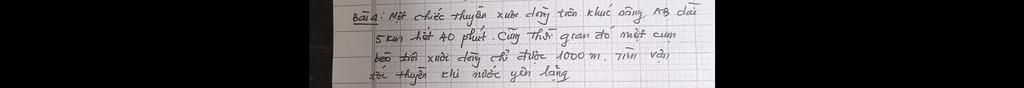 Bài 4: Một chiếc thuyền xuôi dòng trên khúc sông AB dài
5km hết 40 phút. Cùng thời gian đó một cụm
bèo trôi xuôi dòng chỉ được 1000 m. Tìm vận
tốc thuyền khi nước yên lặng